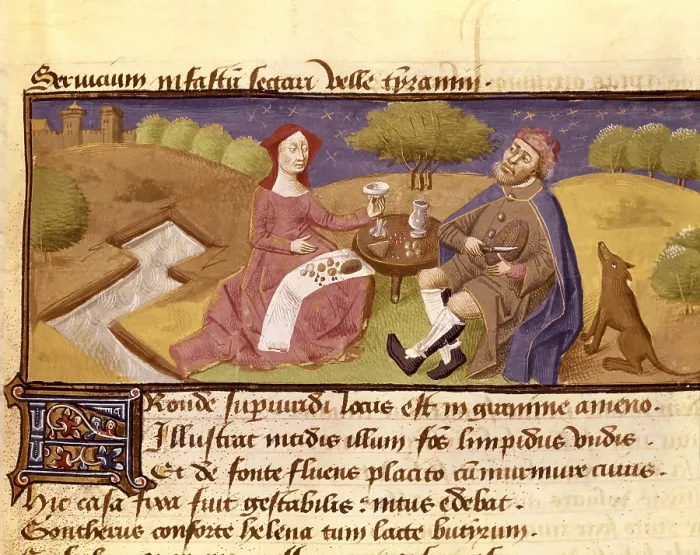 Seruicium infastū sectari velle tyranni.
FRonde sup uiridi locus est in gramine ameno.
Illustrat nitidis illum fōs limpidus vndis.
Et de fonte fluens placito cū murmure riuus.
Hic casa fixa fuit gestabilis : intus edebat.
Gontherus consorte helena tum lacte butyrum.